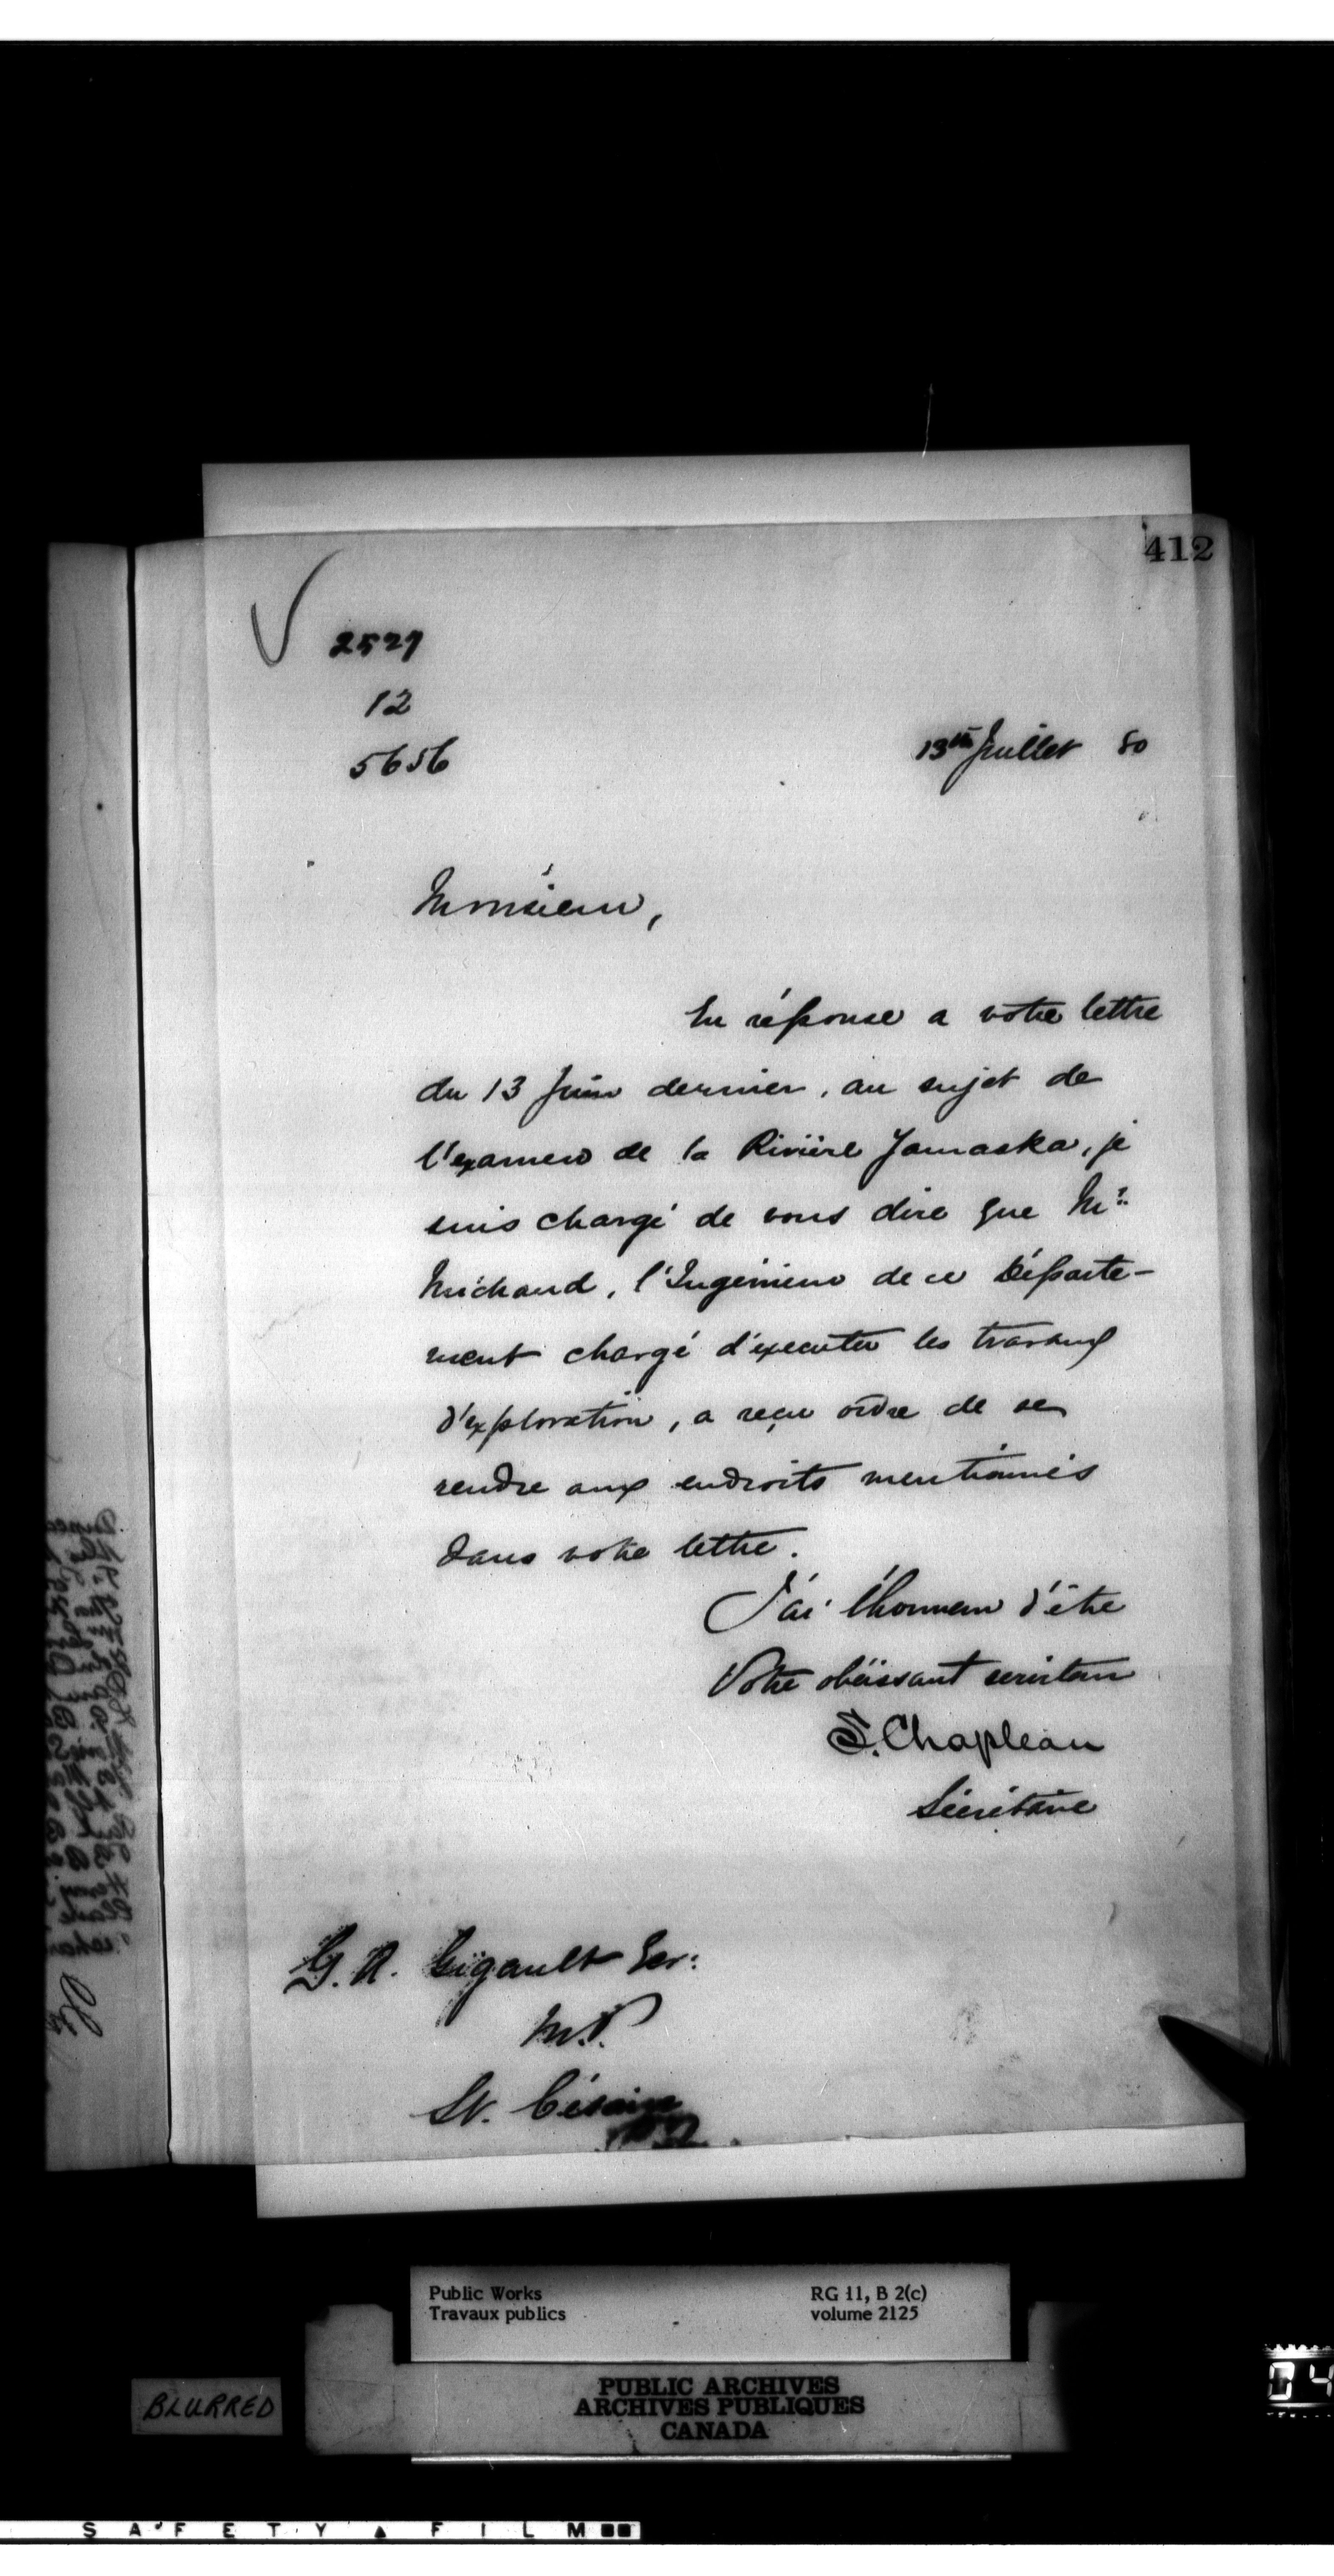 412
2527
12
5656
13th Juillet 80
Monsieur,
En réponse a votre lettre
du 13 Juin dernier, au sujet de
l'examen de la Rivière Yamaska, je
suis chargé de vous dire que Mr.
Michaud, l'Ingénieur de ce Départe-
ment chargé d'executer les travaux
d'exploration, a reçu ordre de se
rendre aux endroits mentionnés
dans votre lettre.
J'ai l'honneur d'être
Votre obéissant serviteur
S. Chapleau
Sécrétaire
G. A. Gigault Ecr:
M.P.
St. Césaire
Public Works
Travaux publics
RG 11, B 2(c)
volume 2125
BLURRED
PUBLIC ARCHIVES
ARCHIVES PUBLIQUES
CANADA
04
SAFETY FILM